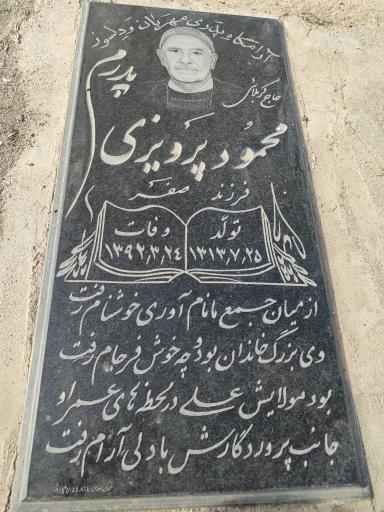 آرامگاه پدری مهربان و دلسوز
پدرم
حاج کربلائی
محمود پرویزی
فرزند صفر
تولد
۱۳۱۳,۷,۲۵
وفات
۱۳۹۲,۳,۲۴
از میان جمع ما نام آوری خوشنام رفت
وی بزرگ خاندان بود و چه خوش فرجام رفت
بود مولایش علی در لحظه های عمر او
جانب پروردگارش با دلی آرام رفت